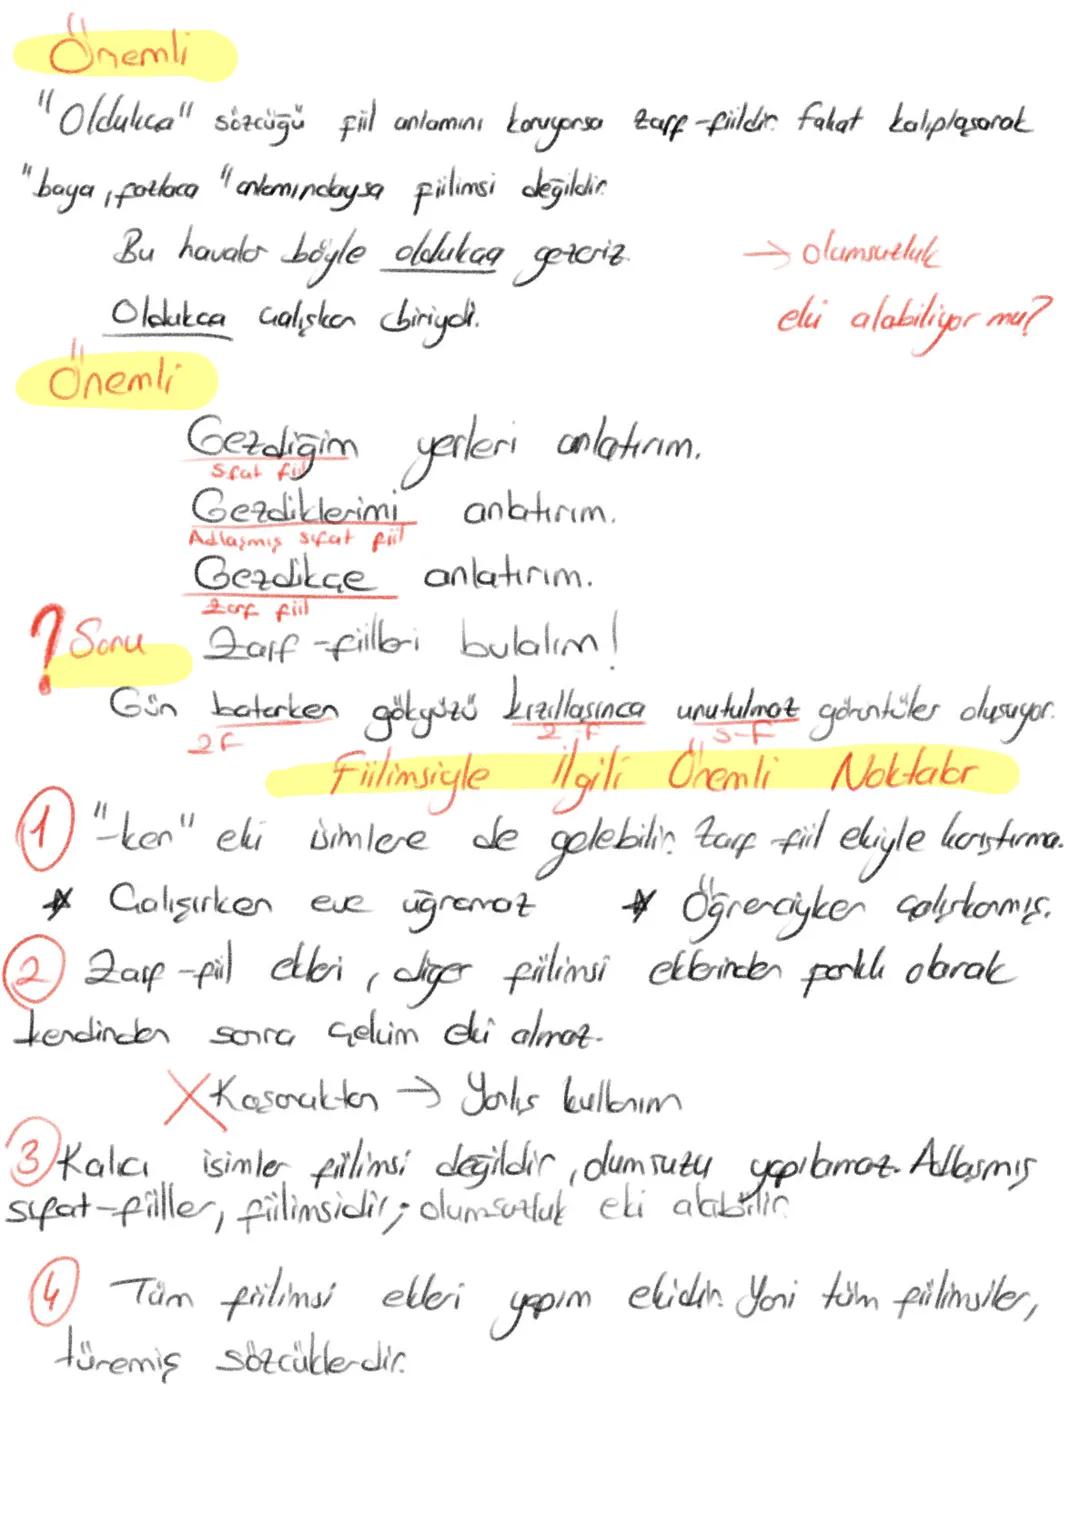 Önemli
"Oldukca" sözcüğü fiil anlamını koruyorsa zarf-fiildir. fakat kalıplaşarak
"baya, fazlaca" anlamındaysa fiilimsi değildir.
Bu havalar böyle oldukça gezeriz.
→ olumsuzluk
Oldukca çalışkan biriydi.
eki alabiliyor mu?
Önemli
Gezdiğim yerleri anlatırım.
Sıfat fiil
Gezdiklerimi anlatırım.
Adlaşmış sıfat fiil
Gezdikçe anlatırım.
Zarf fiil
? Soru Zarf-fiilleri bulalım!
Gün batarken gökyüzü kızıllaşınca unutulmaz görüntüler oluşuyor.
ZF Z-F S-F
Fiilimsiyle İlgili Önemli Noktalar
1 "-ken" eki isimlere de gelebilir. Zarf-fiil ekiyle karıştırma.
* Çalışırken eve uğramaz * Öğrenciyken çalışkanmış.
2 Zarf-fiil ekleri, diğer fiilimsi eklerinden farklı olarak
kendinden sonra çekim eki almaz.
X Koşaraktan → Yanlış kullanım
3 Kalıcı isimler fiilimsi değildir, olumsuzu yapılamaz. Adlaşmış
sıfat-fiiller, fiilimsidir; olumsuzluk eki alabilir.
4 Tüm fiilimsi ekleri yapım ekidir. Yani tüm fiilimsiler,
türemiş sözcüklerdir.